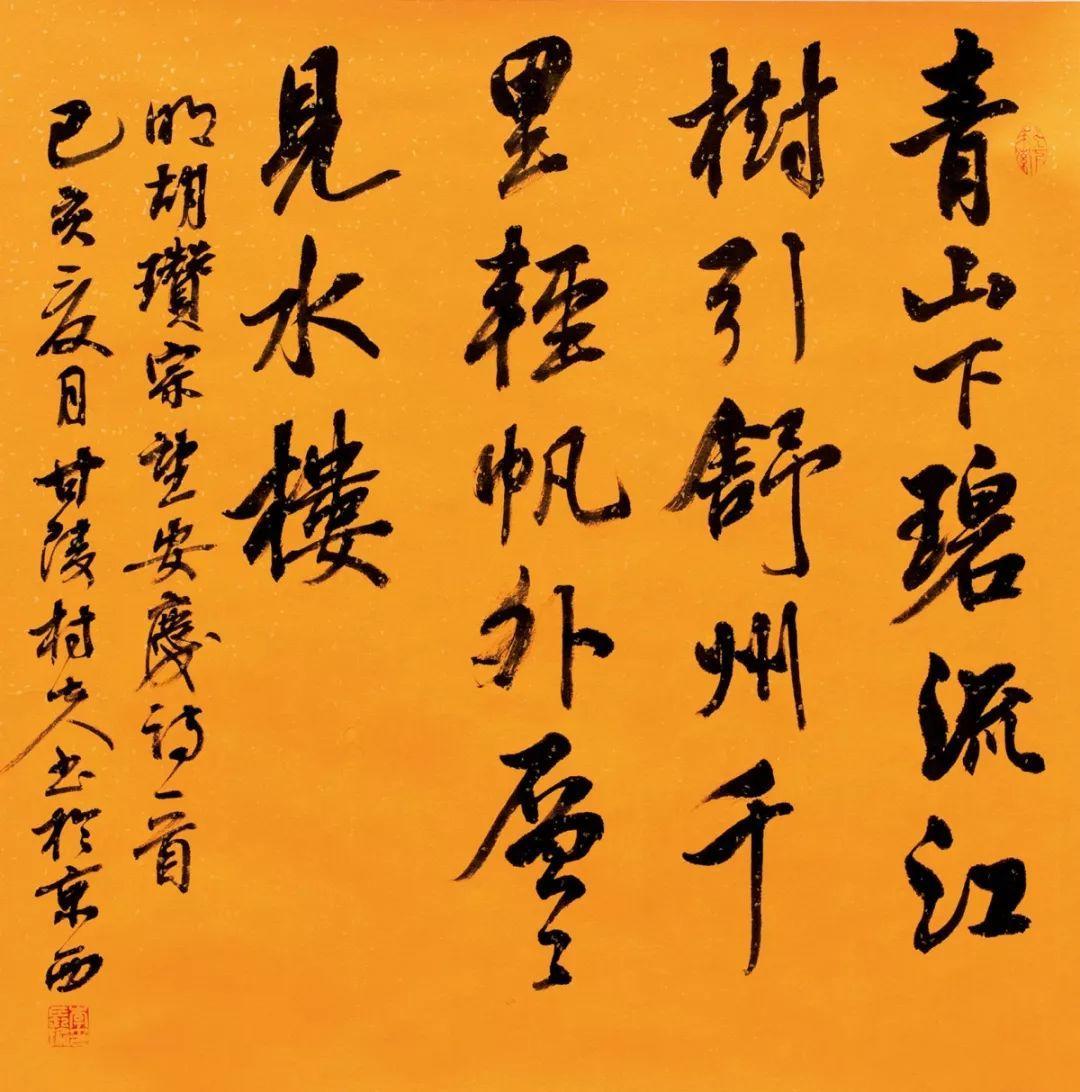 青山下碧流江
樹引舒州千
里輕帆外層〻
見水樓
明胡瓚宗望安慶詩一首
己亥夏月甘陵村夫書於京西